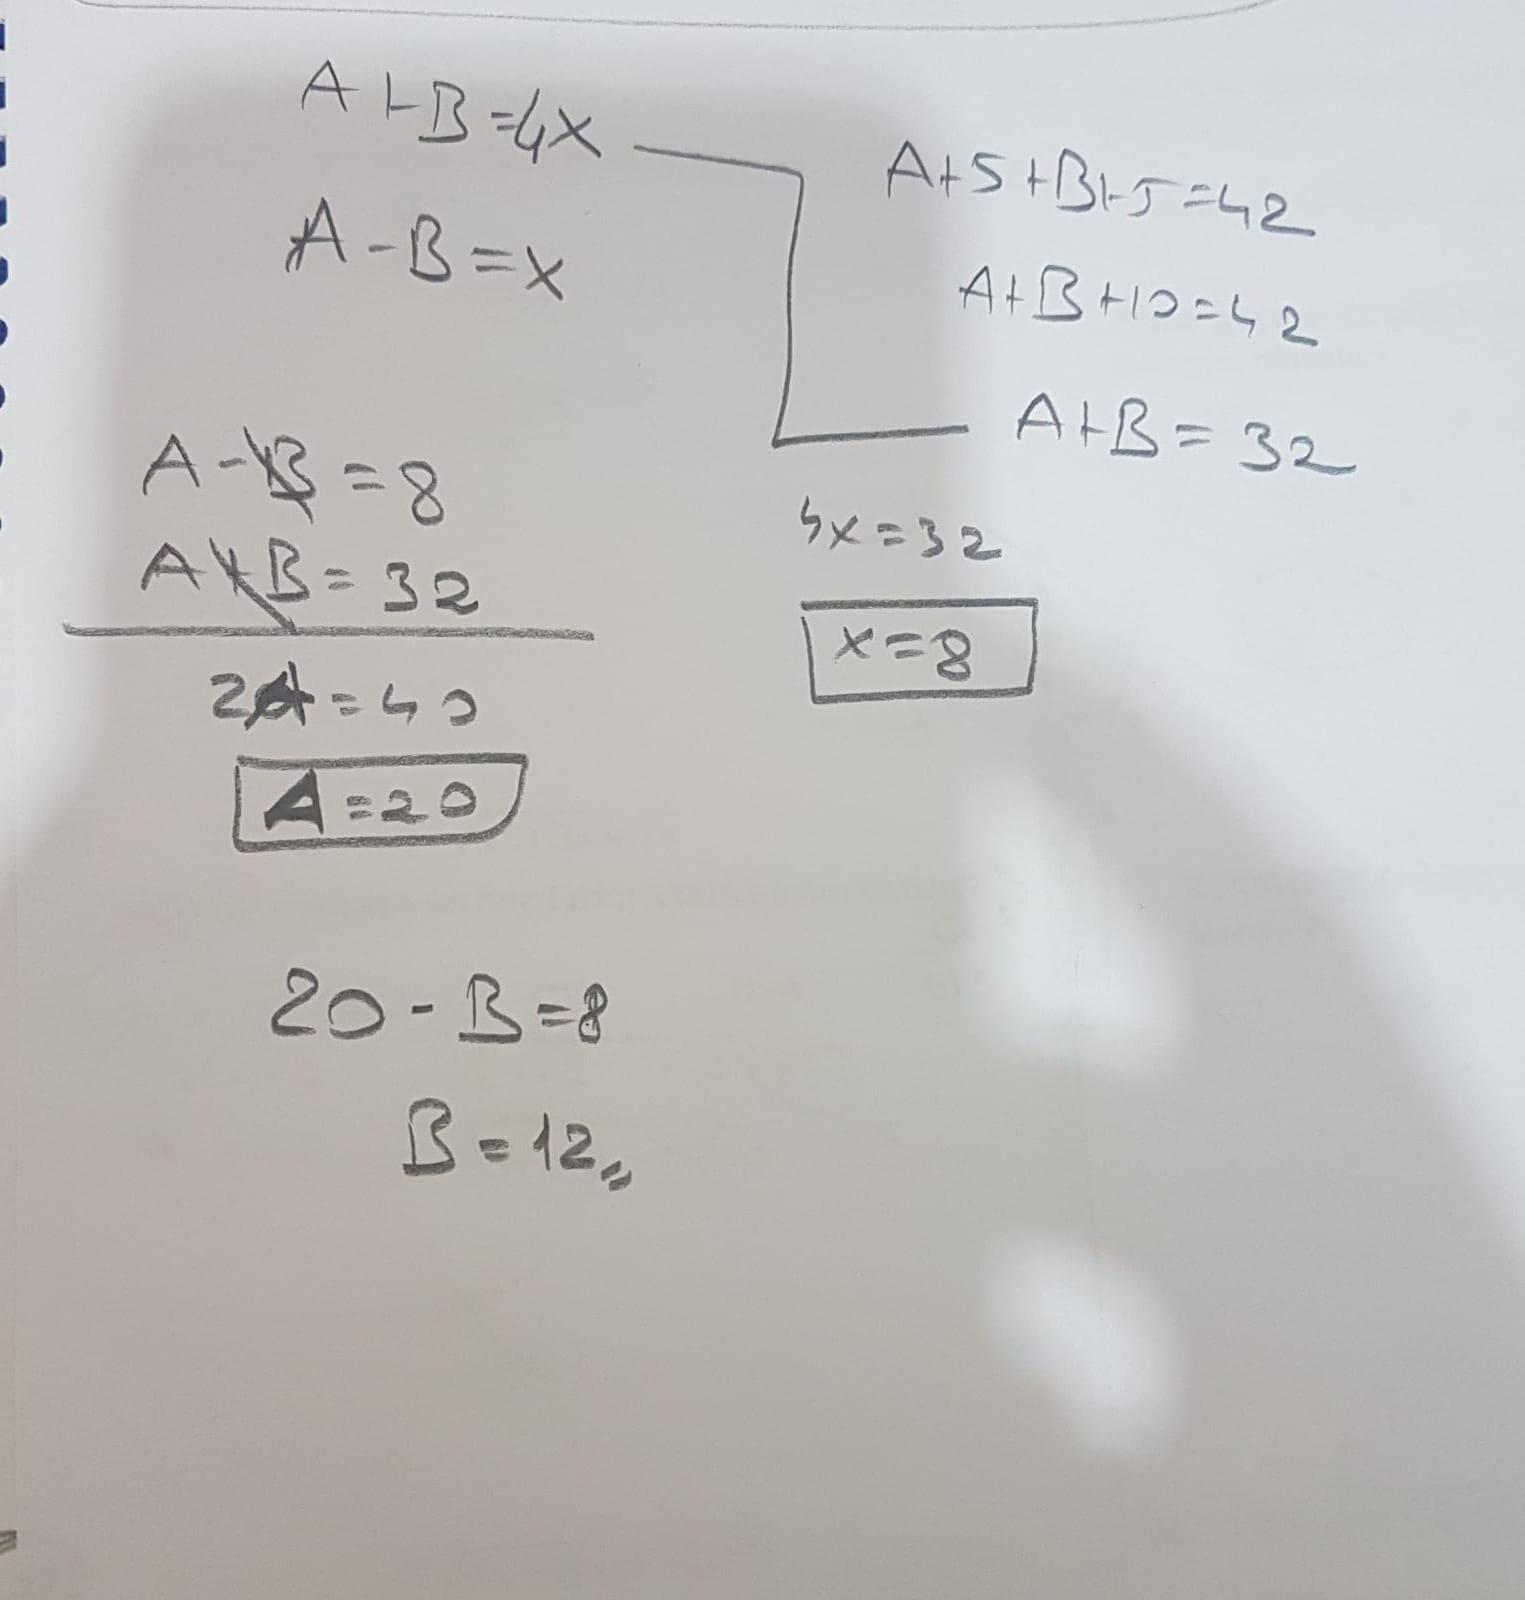 A+B=4x
A-B=x
A+5+B+5=42
A+B+10=42
A+B=32
4x=32
x=8
A-B=8
A+B=32
2A=40
A=20
20-B=8
B=12,,